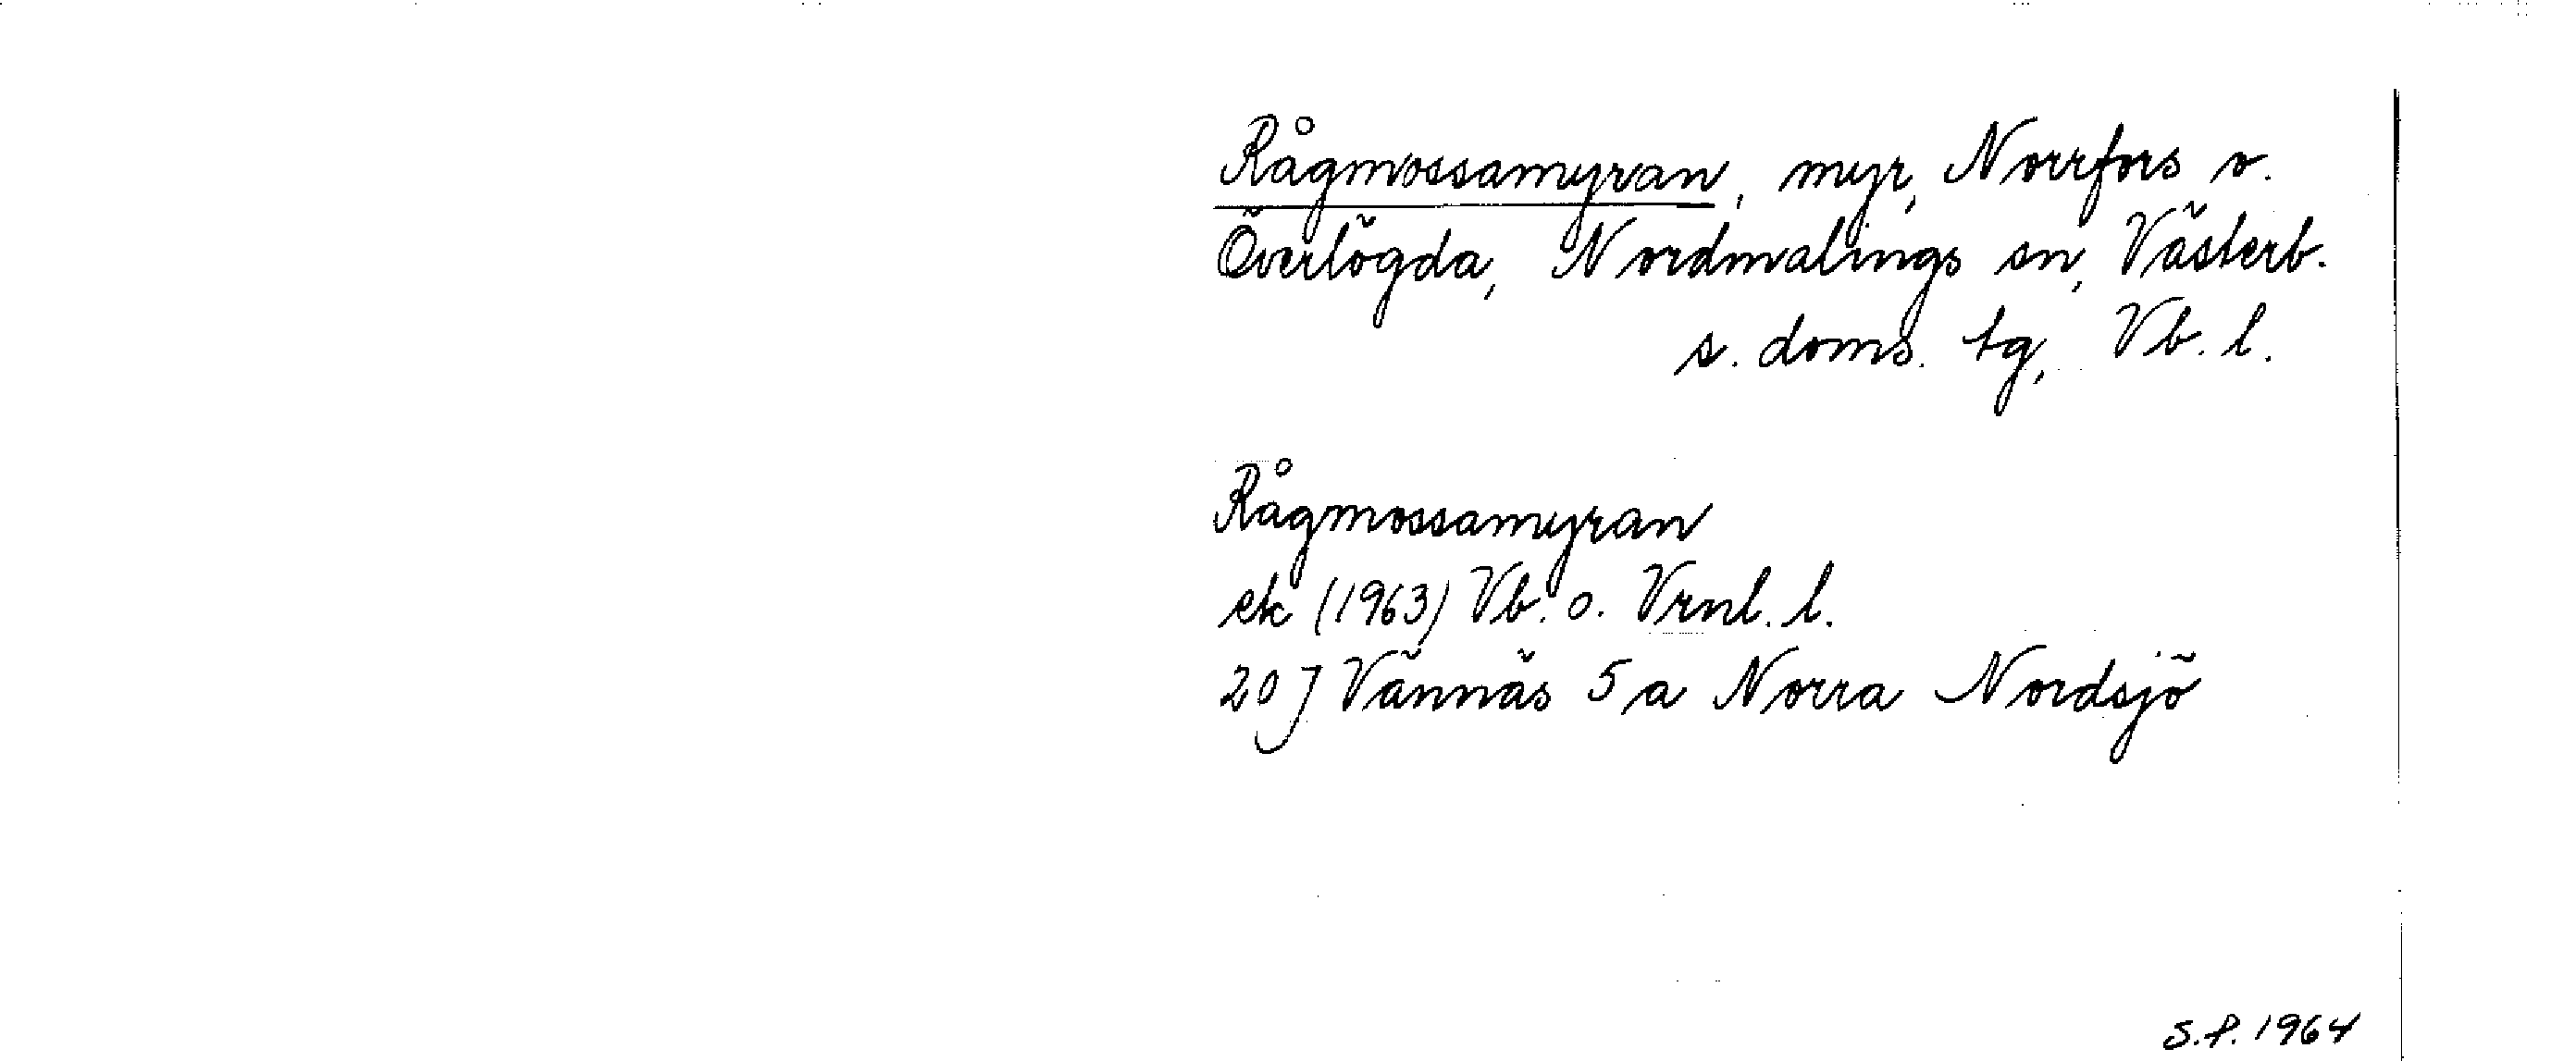 Rågmossamyran, myr, Norrfors o.
Överlögda, Nordmalings sn, Västerb.
s. doms. tg, Vb. l.
Rågmossamyran
ek (1963) Vb. o. Vrnl. l.
20 J Vännäs 5 a Norra Nordsjö
S.P. 1964